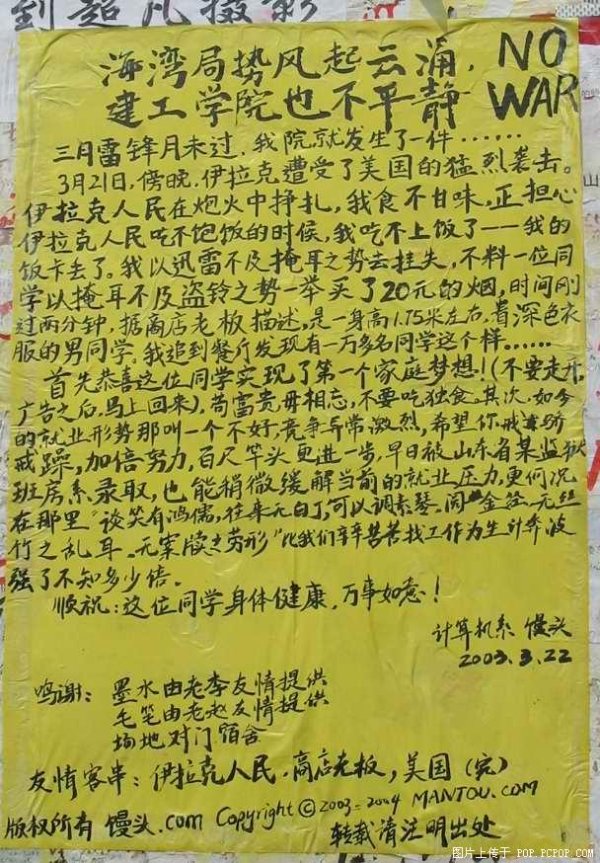 到超凡摄影
海湾局势风起云涌,
建工学院也不平静
NO
WAR
三月雷锋月未过,我院就发生了一件……
3月21日,傍晚,伊拉克遭受了美国的猛烈袭击。
伊拉克人民在炮火中挣扎,我食不甘味,正担心
伊拉克人民吃不饱饭的时候,我吃不上饭了——我的
饭卡丢了。我以迅雷不及掩耳之势去挂失,不料一位同
学以掩耳不及盗铃之势一举买了20元的烟,时间刚
过两分钟,据商店老板描述,是一身高1.75米左右,着深色衣
服的男同学,我追到餐厅发现有一万多名同学这个样……
首先恭喜这位同学实现了第一个家庭梦想!(不要走开,
广告之后,马上回来),苟富贵毋相忘,不要吃独食。其次,如今
的就业形势那叫一个不好,竞争异常激烈,希望你戒骄
戒躁,加倍努力,百尺竿头更进一步,早日被山东省某监狱
班房系录取,也能稍微缓解当前的就业压力,更何况
在那里"谈笑有鸿儒,往来无白丁,可以调素琴,阅金经,无丝
竹之乱耳,无案牍之劳形"比我们辛辛苦苦找工作为生计奔波
强了不知多少倍。
顺祝:这位同学身体健康,万事如意!
计算机系 馒头
2003.3.22
鸣谢:墨水由老李友情提供
毛笔由老赵友情提供
场地对门宿舍
友情客串:伊拉克人民,商店老板,美国(完)
版权所有 馒头.com Copyright ©2003-2004 MANTOU.COM
转载请注明出处
图片上传于 POP.PCPOP.COM